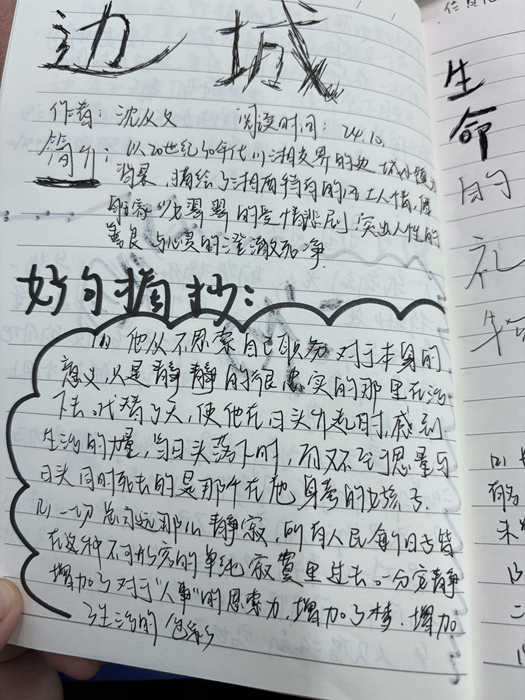 边城
作者：沈从文 阅读时间：24.10.
简介：以20世纪30年代川湘交界的边城小镇为
背景，描绘了湘西特有的风土人情，
翠翠的爱情悲剧，突出人性的
善良与心灵的澄澈和净
好句摘抄：
(1) 他从不思索自己职务对于本身的
意义，只是静静的很忠实的那里在活
下去。代替了天，使他在日头升起时，感到
生活的力量，当日头落下时，而又不至于思量与
日头同时死去的是那个在他身旁的女孩子
(2) 一切总永远那么静寂，所有人民每个日子皆
在这种不可形容的单纯寂寞里过去。一分安静
增加了对于"人事"的思索力，增加了梦，增加
了生活的色彩
生
命
的
礼
物